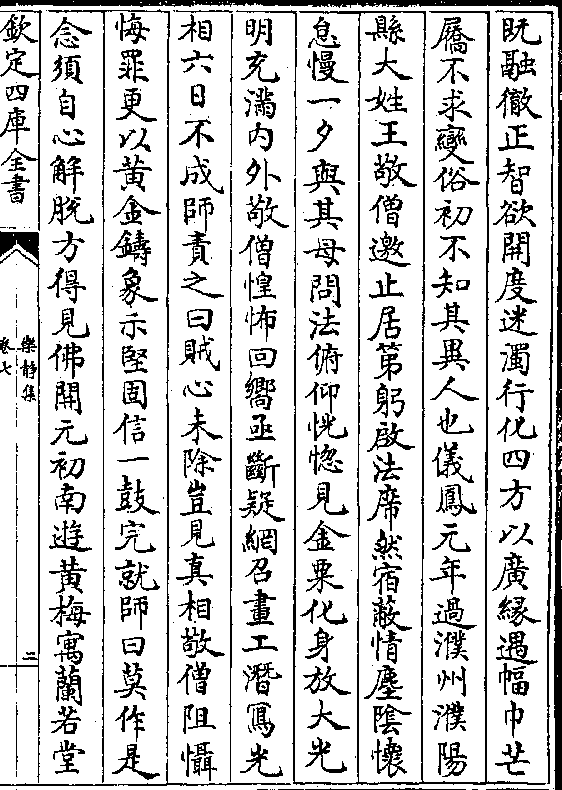 既融徹正智欲開度迷濁行化四方以廣緣遇幅巾芒
屩不求變俗初不知其異人也儀鳳元年過濮州濮陽
縣大姓王敬僧邀止居第躬啟法席然宿蔽情塵陰懷
怠慢一夕與其母問法俯仰恍惚見金粟化身放大光
明充滿內外敬僧惶怖回嚮亟斷疑網召畫工潛寫光
相六日不成師責之曰賊心未除豈見真相敬僧阻懾
悔罪更以黃金鑄象示堅固信一鼓完就師曰莫作是
念須自心解脫方得見佛開元初南遊黃梅寓蘭若堂
欽定四庫全書
樂靜集
卷七
二